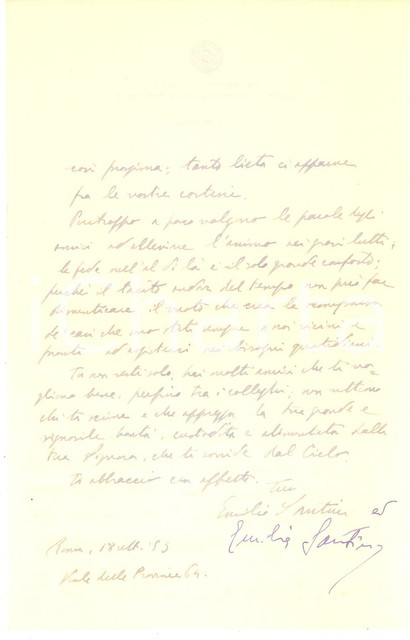 così prossima; tanto lieta ci apparve
fra le vostre
Purtroppo a poco valgono le parole degli
amici ad alleviare l'animo nei gravi lutti,
la fede nell'al di là è il solo grande conforto;
perché il tacito andare del tempo non può far
dimenticare il vuoto che crea la scomparsa
de' cari che sono stati sempre a noi vicini e
pronti ad assisterci nei bisogni quotidiani.
Tu non resti solo, hai molti amici che ti vo-
gliono bene, perfino tra i colleghi,
chi ti vicino e che apprezza la tua grande e
signorile bontà, custodita e alimentata dalla
tua Signora, che ti sorride dal Cielo.
Ti abbraccio con affetto.
Tuo
Emilio Santini ed
Emilia Santini
Roma, 18 ott. '55
Viale delle Province